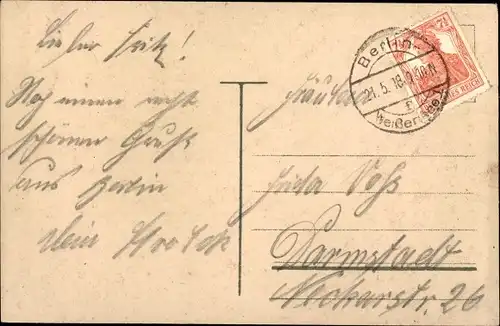 Lieber Fritz!
Noch einen recht
schönen Gruß
aus Berlin
Dein
Berlin-
21.5.18.
f
Weißensee
7½
DEUTSCHES REICH
Fräulein
Frida Voß
Darmstadt
Neckarstr. 26